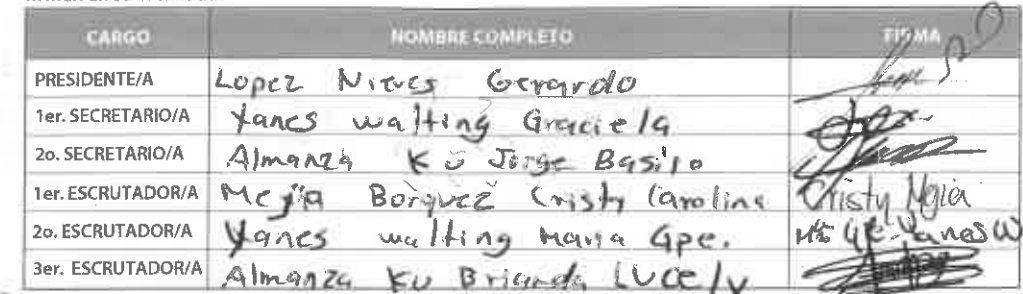 CARGO NOMBRE COMPLETO FIRMA
PRESIDENTE/A Lopez Nieves Gerardo
1er. SECRETARIO/A Yanes walting Graciela
2o. SECRETARIO/A Almanza Kú Jorge Basilio
1er. ESCRUTADOR/A Mejia Borquez Cristy Carolina Cristy Mejia
2o. ESCRUTADOR/A Yanes walting Maria Gpe. Ma Gpe Yanes W
3er. ESCRUTADOR/A Almanza Ku Brianda LUCely